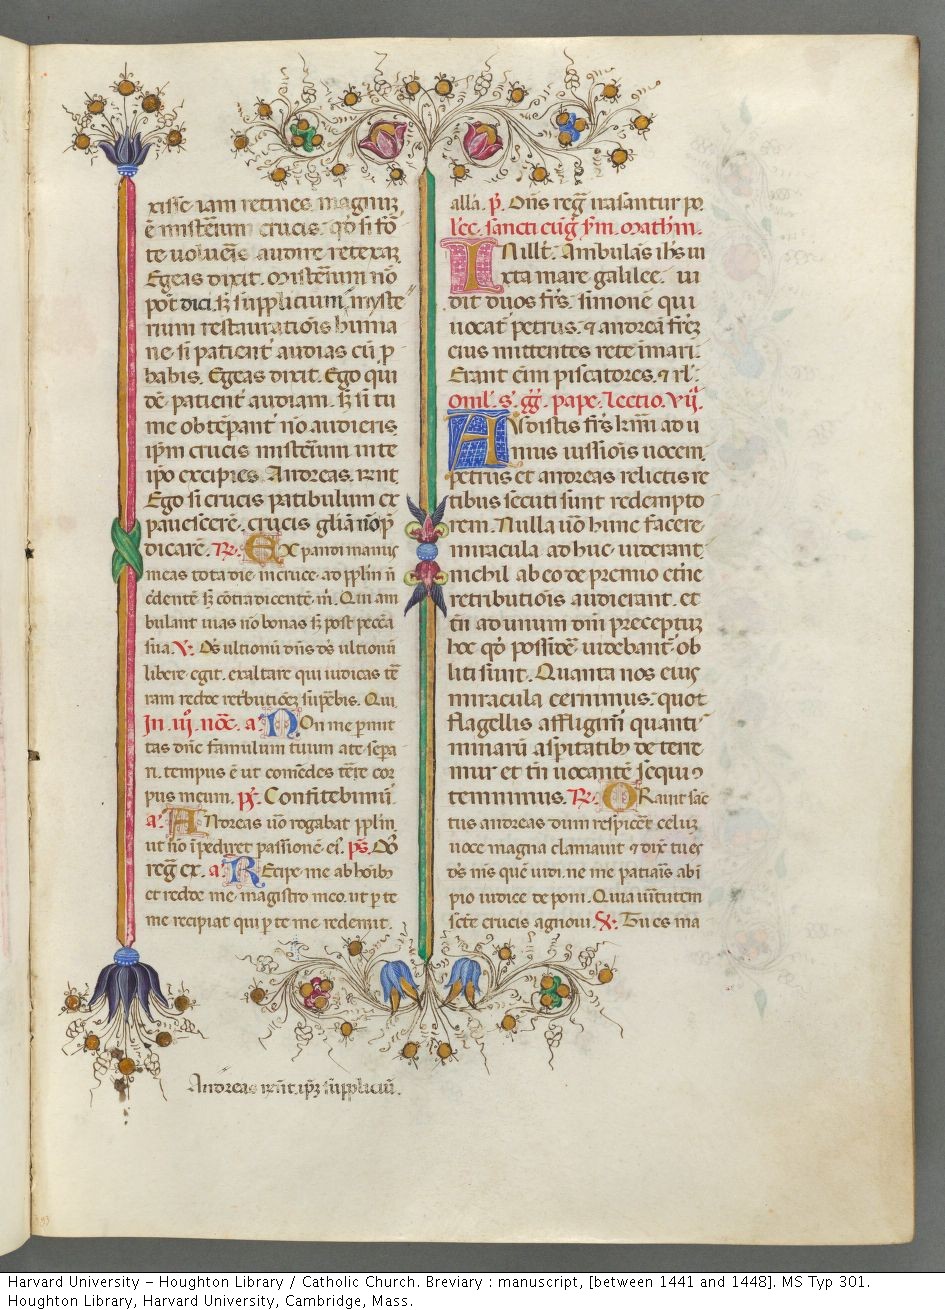 xisse iam retines. magnuꝫ
ē misteriūm crucis. qđ si fō
te uolueīs audire retexaꝫ
Egeas dixit. Misterium nō
pōt dici. sꝫ supplicium, myste
rium restauratiōis huma
ne si patient̄ audias cū ꝓ
babis. Egeas dixit. Ego qui
dē patient̄ audiam. sꝫ si tu
me obtēpant̄ nō audieris
ip̄m crucis misterium in te
ip̄o excipies. Andreas. rn̄t
Ego si crucis patibulum ex
pauescerē. crucis gl̄iā nō p̄
dicarē. R. Expandi manus
meas tota die. in cruce. ad pp̄lm n̄
c̄dentē sꝫ cōtradicentē m̄. Qui am
bulant uias nō bonas sꝫ post peccā
sua. V. Ds̄ ultionū dn̄s ds̄ ultionū
libere egit. exaltare qui iudicas t̄
ram redde ret̄butiōeꝫ supbis. Qui.
In .iij. noc̄. a. Non me pmit
tas dn̄e famulum tuum a te sepa
ri. tempus ē ut comēdes t̄re cor
pus meum. ps̄. Confitebimū.
a. Andreas uō rogabat pp̄lm
ut nō īpediret passionē ei. ps̄. Ds̄
reḡ ex. a. Recipe me ab hoībꝫ
et redde me magistro meo. ut p te
me recipiat qui p te me redemit.
Andreas rn̄t. ip̄ꝫ suppliciū.
alla. p̄. Dn̄s reḡ irasantur po
lec̄. sancti eūg s̄m. mathm̄.
In illt̄. Ambulās ih̄s iu
xta mare galilee. ui
dit duos fr̄s. simonē qui
uocat̄ petrus. ⁊ andreā fr̄eꝫ
eius mittentes rete ī mari.
Erant eīm piscatores. ⁊ rl̄.
Oml̄. s̄. gḡ. pape. Lectio. vij.
Audistis fr̄s kr̄mi ad u
nius iussiōis uocem.
petrus et andreas relictis re
tibus secuti sunt redempto
rem. Nulla uō hunc facere
miracula adhuc uiderant.
nichil ab eo de premio et̄ne
retributiōis audierant. et
tn̄ ad unum dn̄i preceptuꝫ
hoc qđ possidē uidebant̄ ob
liti sunt. Quanta nos eius
miracula cernimus. quot
flagellis affligim̄ quanti
minarū aspitatibꝫ de terre
mur et tn̄ uocantē sequi
temnimus. R. Orauit sāc
tus andreas dum respicēt celuꝫ
uoce magna clamauit ⁊ dix̄ tu es
ds̄ m̄s quē uidi. ne me patiaīs ab ī
pio iudice deponi. Quia uirtutem
scē crucis agnoui. V. Tu es ma
Harvard University – Houghton Library / Catholic Church. Breviary : manuscript, [between 1441 and 1448]. MS Typ 301.
Houghton Library, Harvard University, Cambridge, Mass.